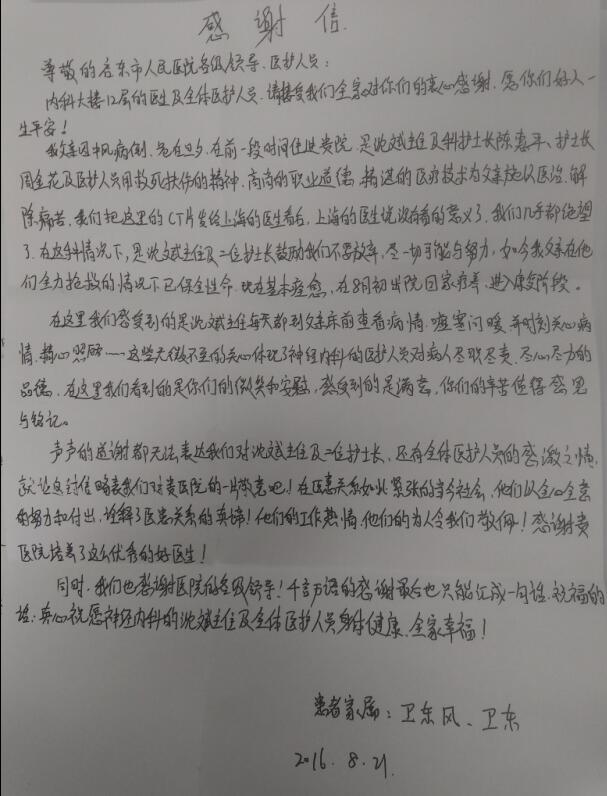 感谢信
尊敬的启东市人民医院各级领导、医护人员：
内科大楼12层的医生及全体医护人员,请接受我们全家对你们的衷心感谢,愿你们好人一
生平安！
我父亲因中风病倒,危在旦夕,在前一段时间住进贵院,是沈斌主任及科护士长陈惠平、护士长
周金花及医护人员用救死扶伤的精神,高尚的职业道德,精湛的医疗技术为父亲施以医治,解
除痛苦,我们把这里的CT片发给上海的医生看后,上海的医生说没有看的意义了,我们几乎都绝望
了,在这种情况下,是沈斌主任及二位护士长鼓励我们不要放弃,尽一切可能与努力,如今我父亲在他
们全力抢救的情况下已保全性命,现在基本痊愈,在8月初出院回家疗养,进入康复阶段。
在这里我们感受到的是沈斌主任每天都到父亲床前查看病情,嘘寒问暖,并时刻关心病
情,精心照顾……这些无微不至的关心体现了神经内科的医护人员对病人尽职尽责,尽心尽力的
品德,在这里我们看到的是你们的微笑和安慰,感受到的是满意,你们的辛苦值得感恩
与铭记。
声声的道谢都无法表达我们对沈斌主任及二位护士长,还有全体医护人员的感激之情,
就让这封信略表我们对贵医院的一片敬意吧！在医患关系如此紧张的当今社会,他们以全心全意
的努力和付出,诠释了医患关系的真谛！他们的工作热情,他们的为人令我们敬佩！感谢贵
医院培养了这么优秀的好医生！
同时,我们也感谢医院的各级领导！千言万语的感谢最后也只能汇成一句话,祝福的
话：真心祝愿神经内科的沈斌主任及全体医护人员身体健康,全家幸福！
患者家属：卫东风、卫东
2016.8.21.